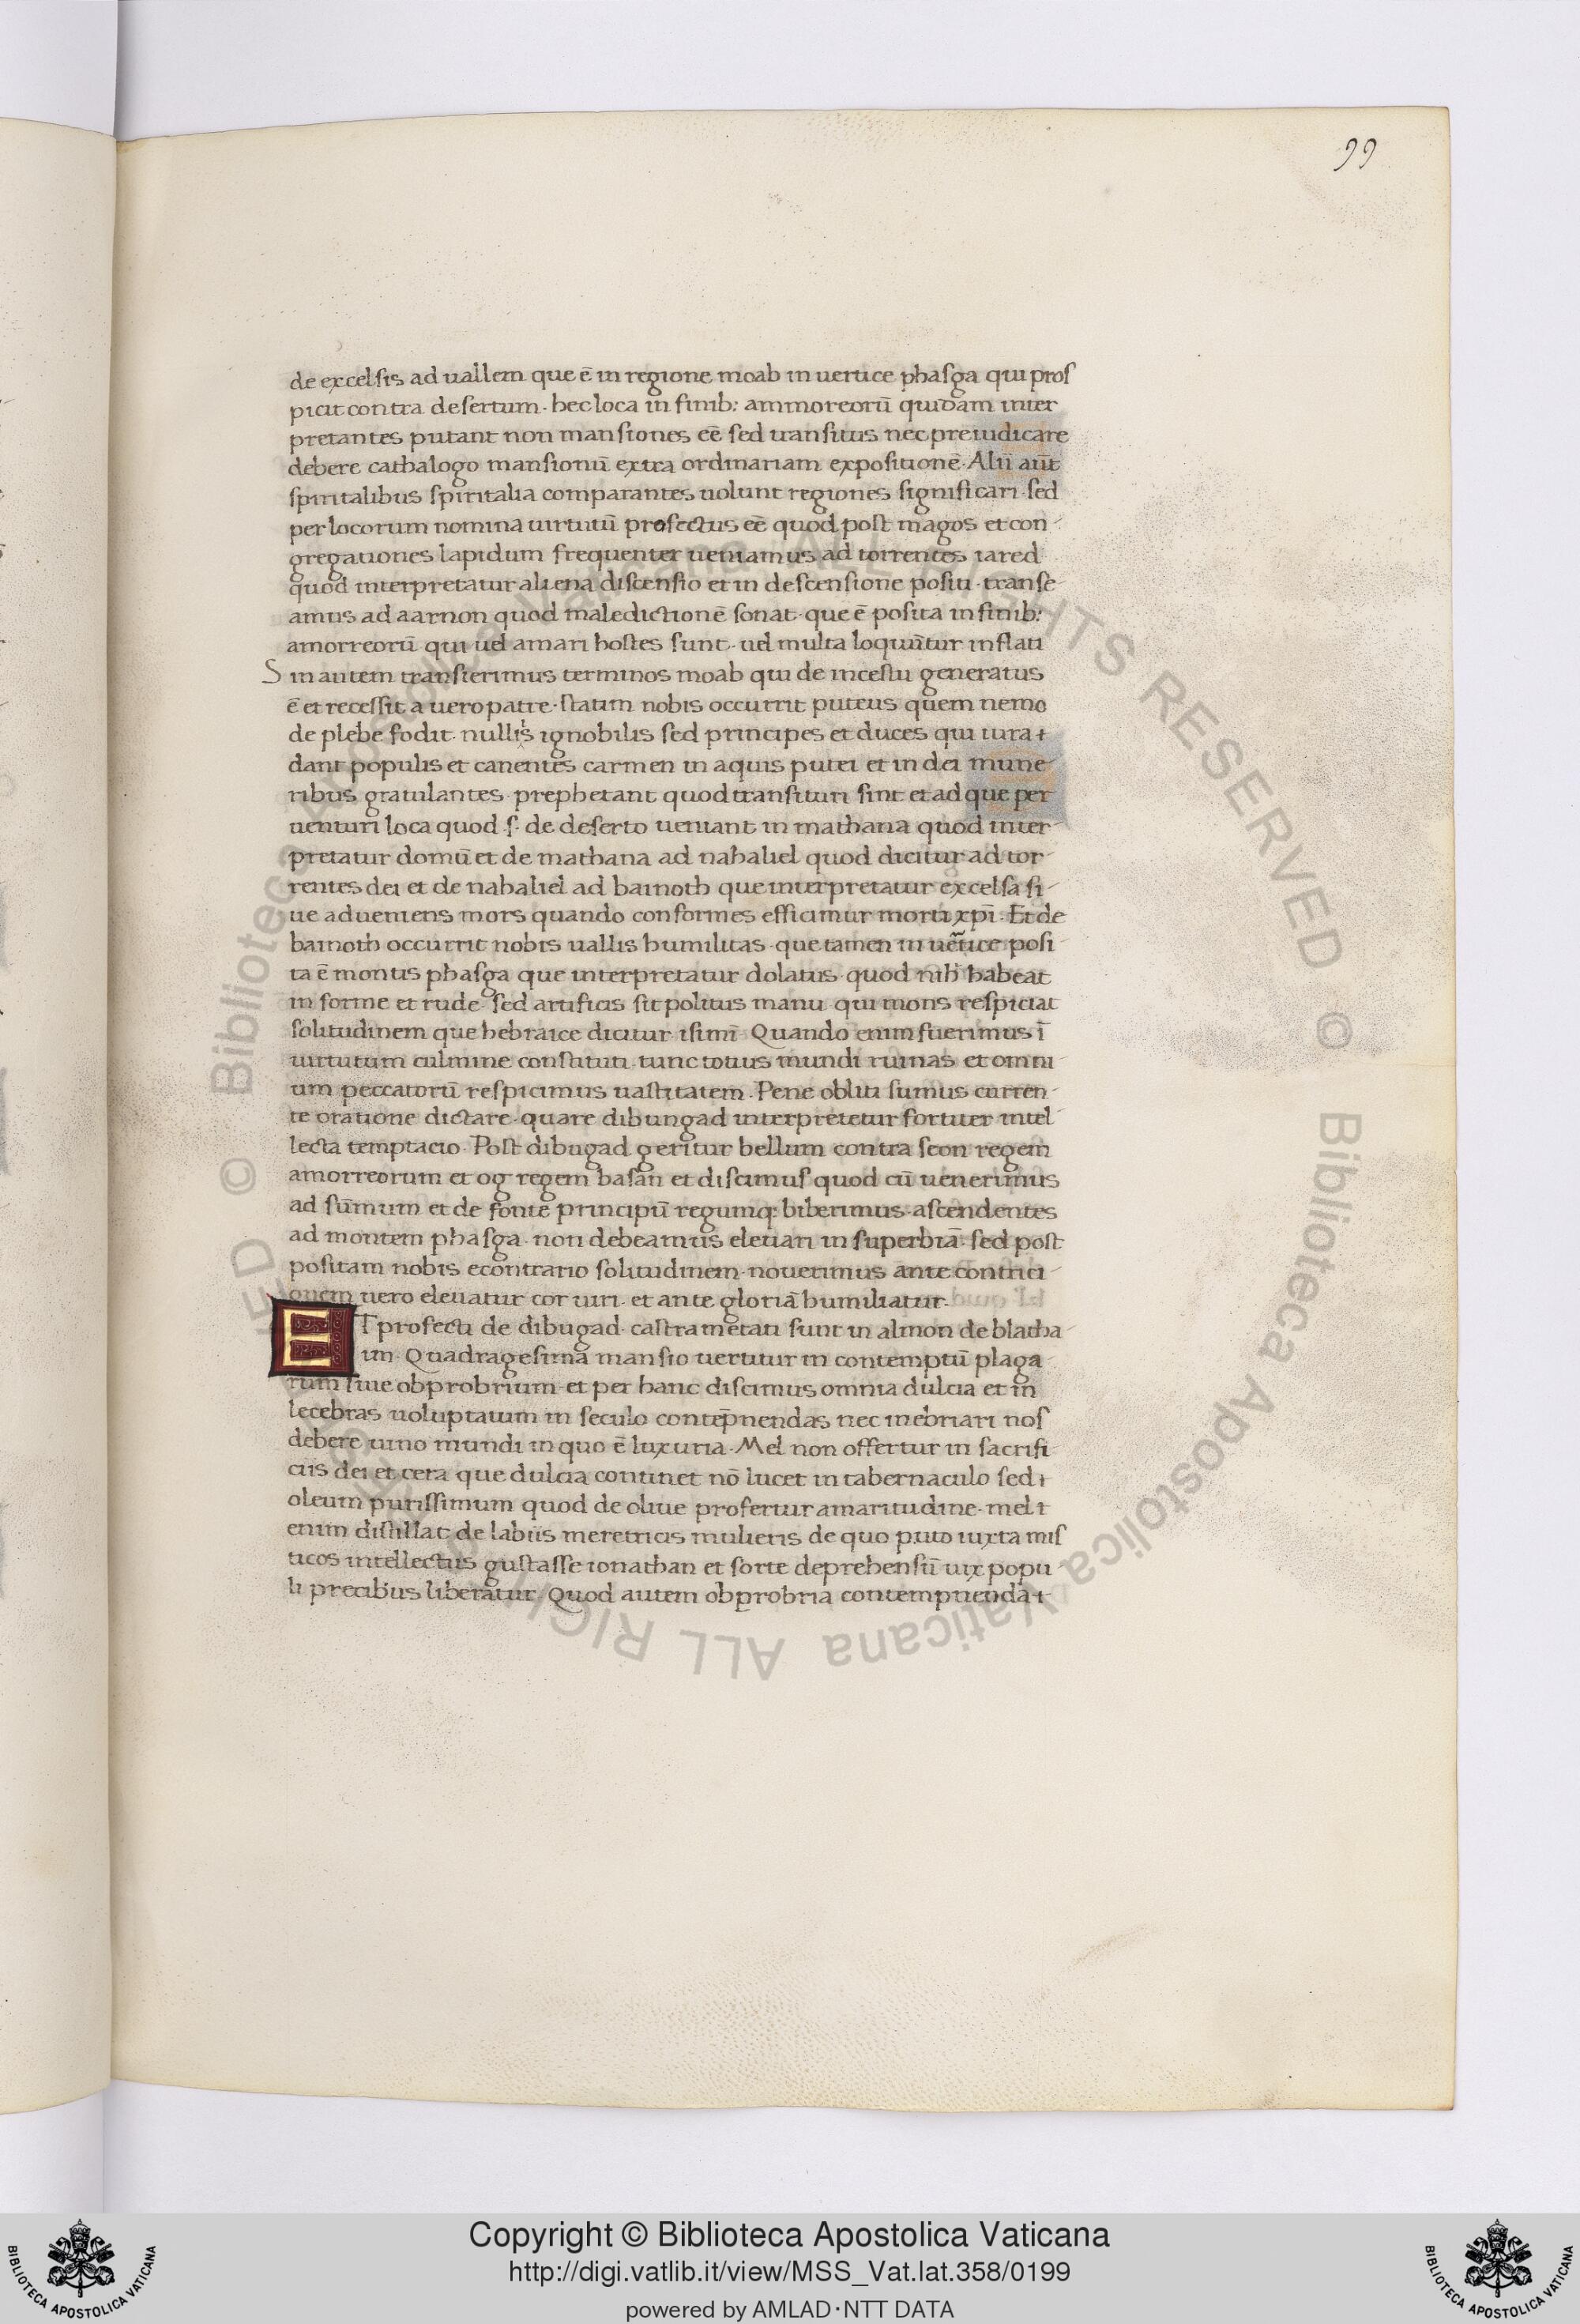 99
de excelsis ad uallem que ē in regione moab in uertice phasga qui pros
picit contra desertum · hec loca in finib: ammoreorū quidam inter
pretantes putant non mansiones eē sed transitus nec preiudicare
debere cathalogo mansionū extra ordinariam expositionē · Alii aūt
spiritalibus spiritalia comparantes uolunt regiones significari · sed
per locorum nomina uirtutū profectus eē quod post magos et con-
gregationes lapidum frequenter ueniamus ad torrentes iared
quod interpretatur aliena discensio et in descensione positi · transe
amus ad aarnon quod maledictionē sonat · que ē posita in finib:
amorreorū qui uel amari hostes sunt · uel multa loquūtur inflati
Sin autem transierimus terminos moab qui de incestu generatus
ē et recessit a uero patre · statim nobis occurrit puteus quem nemo
de plebe fodit · nullis ignobilis sed principes et duces qui iura
dant populis et canentes carmen in aquis putei et in dei mune-
ribus gratulantes · prephetant quod transituri sint et ad que per
uenturi loca quod .s. de deserto ueniant in mathana quod inter-
pretatur domū et de mathana ad nahaliel quod dicitur ad tor-
rentes dei et de nahaliel ad bamoth que interpretatur excelsa si-
ue adueniens mors quando conformes efficimur morti xp̄i · Et de
bamoth occurrit nobis uallis humilitas · que tamen in uertice posi-
ta ē montis phasga que interpretatur dolatus · quod nih̄ habeat
in forme et rude · sed artificis sit politus manu · qui mons respiciat
solitudinem que hebraice dicitur · isimī · Quando enim fuerimus ī
uirtutum culmine constituti · tunc totius mundi ruinas et omni-
um peccatorū respicimus uastitatem · Pene obliti sumus curren-
te oratione dictare · quare dibungad interpretetur fortiter intel-
lecta temptacio · Post dibugad geritur bellum contra seon regem
amorreorum et og regem basan et discimus quod cū uenerimus
ad sūmum et de fonte principū regumq: biberimus · ascendentes
ad montem phasga · non debeamus eleuari in superbiā · sed post
positam nobis econtrario solitudinem · nouerimus ante contrici
onem uero eleuatur cor uiri · et ante gloriā humiliatur ·
ET profecti de dibugad · castra metati sunt in almon de blatha-
im · Quadragesima mansio uertitur in contemptū plaga-
rum siue obprobrium · et per hanc discimus omnia dulcia et in
lecebras uoluptatum in seculo contēpnendas nec inebriari nos
debere uino mundi in quo ē luxuria · Mel non offertur in sacrifi-
ciis dei et cera que dulcia continet nō lucet in tabernaculo sed
oleum purissimum quod de oliue profertur amaritudine · mel
enim distillat de labiis meretricis mulieris de quo puto iuxta mis
ticos intellectus gustasse ionathan et sorte deprehensū uix popu-
li precibus liberatur · Quod autem obprobria contempnenda
Copyright © Biblioteca Apostolica Vaticana
http://digi.vatlib.it/view/MSS_Vat.lat.358/0199
powered by AMLAD·NTT DATA